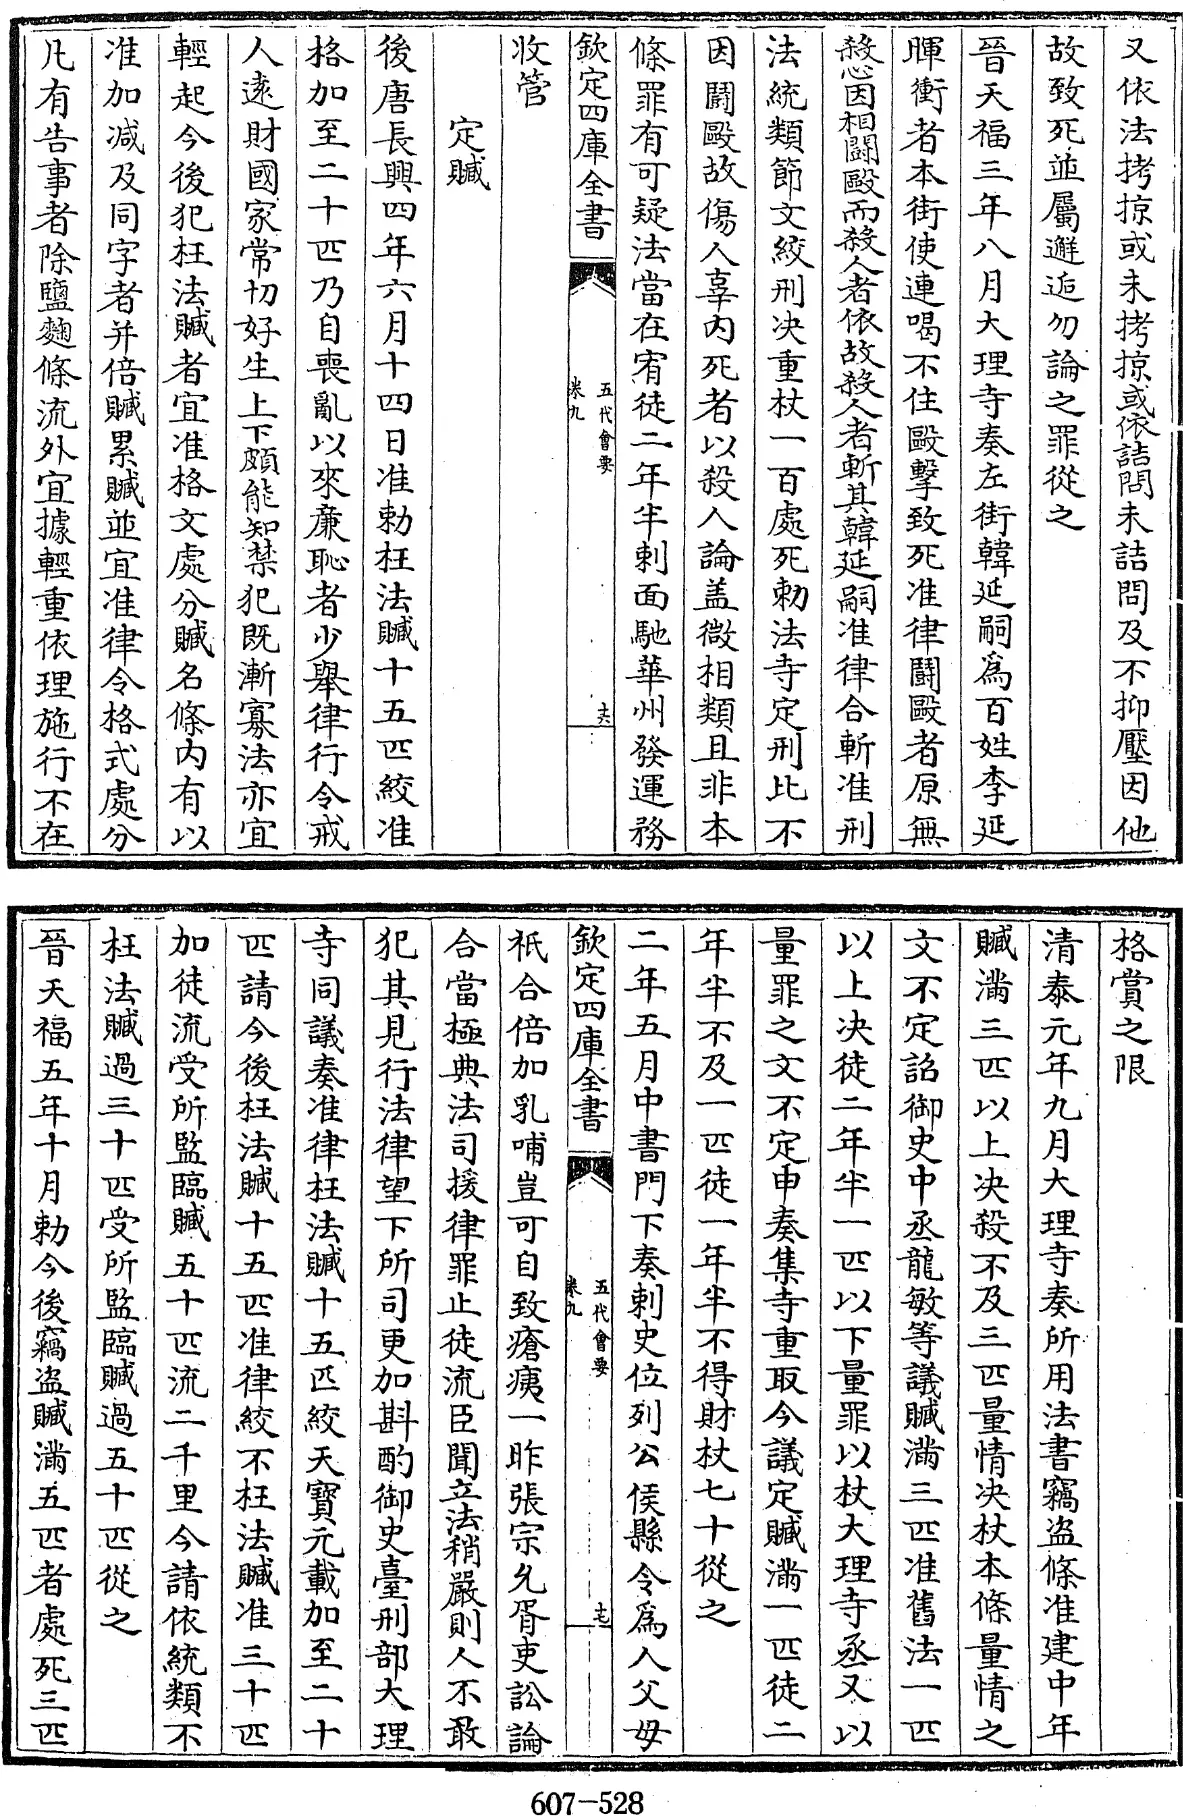 又依法拷掠或未拷掠或依詰問未詰問及不抑壓因他
故致死並屬邂逅勿論之罪從之
晉天福三年八月大理寺奏左街韓延嗣為百姓李延
暉衝者本街使連喝不住毆擊致死准律鬭毆者原無
殺心因相鬭毆而殺人者依故殺人者斬其韓延嗣准律合斬准刑
法統類節文絞刑决重杖一百處死勅法寺定刑比不
因鬭毆故傷人辜内死者以殺人論盖微相類且非本
條罪有可疑法當在宥徒二年半刺面馳華州發運務
欽定四庫全書
五代會要
卷九
十六
收管
定贓
後唐長興四年六月十四日准勅枉法贓十五匹絞准
格加至二十匹乃自喪亂以來廉恥者少舉律行令戒
人遠財國家常切好生上下頗能知禁犯既漸寡法亦宜
輕起今後犯枉法贓者宜准格文處分贓名條内有以
准加减及同字者并倍贓累贓並宜准律令格式處分
凡有告事者除鹽麴條流外宜據輕重依理施行不在
格賞之限
清泰元年九月大理寺奏所用法書竊盜條准建中年
贓滿三匹以上决殺不及三匹量情决杖本條量情之
文不定詔御史中丞龍敏等議贓滿三匹准舊法一匹
以上决徒二年半一匹以下量罪以杖大理寺丞又以
量罪之文不定申奏集寺重取今議定贓滿一匹徒二
年半不及一匹徒一年半不得財杖七十從之
二年五月中書門下奏刺史位列公侯縣令為人父母
欽定四庫全書
五代會要
卷九
十七
祇合倍加乳哺豈可自致瘡痍一昨張宗允胥吏訟論
合當極典法司援律罪止徒流臣聞立法稍嚴則人不敢
犯其見行法律望下所司更加斟酌御史臺刑部大理
寺同議奏准律枉法贓十五匹絞天寶元載加至二十
匹請今後枉法贓十五匹准律絞不枉法贓准三十匹
加徒流受所監臨贓五十匹流二千里今請依統類不
枉法贓過三十匹受所監臨贓過五十匹從之
晉天福五年十月勅今後竊盜贓滿五匹者處死三匹
607-528